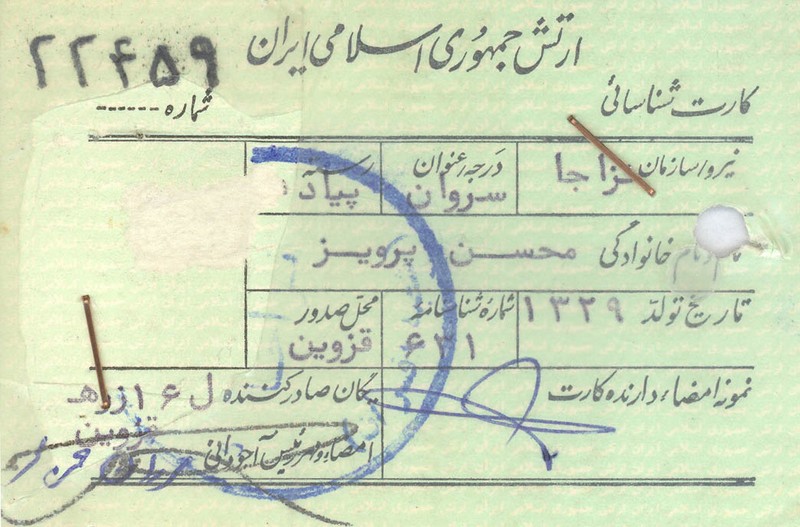 ارتش جمهوری اسلامی ایران
۲۲۴۵۹
کارت شناسائی
شماره ------
نیرو/سازمان نزاجا درجه/عنوان سروان رسته پیاد
نام خانوادگی محسن پرویز
تاریخ تولد ۱۳۲۹ شماره شناسنامه ۶۲۱ محل صدور قزوین
نمونه امضاء دارنده کارت یگان صادرکننده ل ۱۶ زرهـ
قزوین
امضاء و مهر رئیس آجودانی